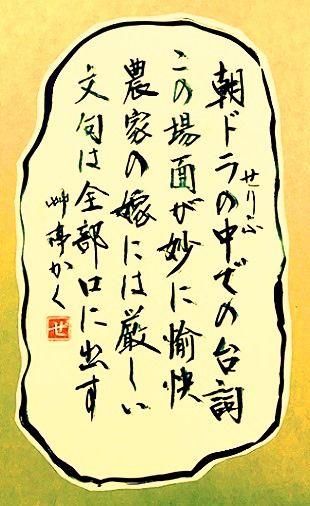 朝ドラの中での台詞
せりふ
この場面が妙に愉快
農家の嫁には厳しい
文句は全部口に出す
艸亭かく
せ